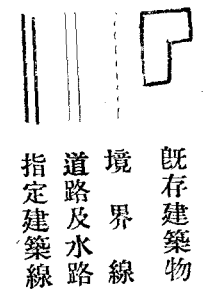 既存建築物
境界線
道路及水路
指定建築線